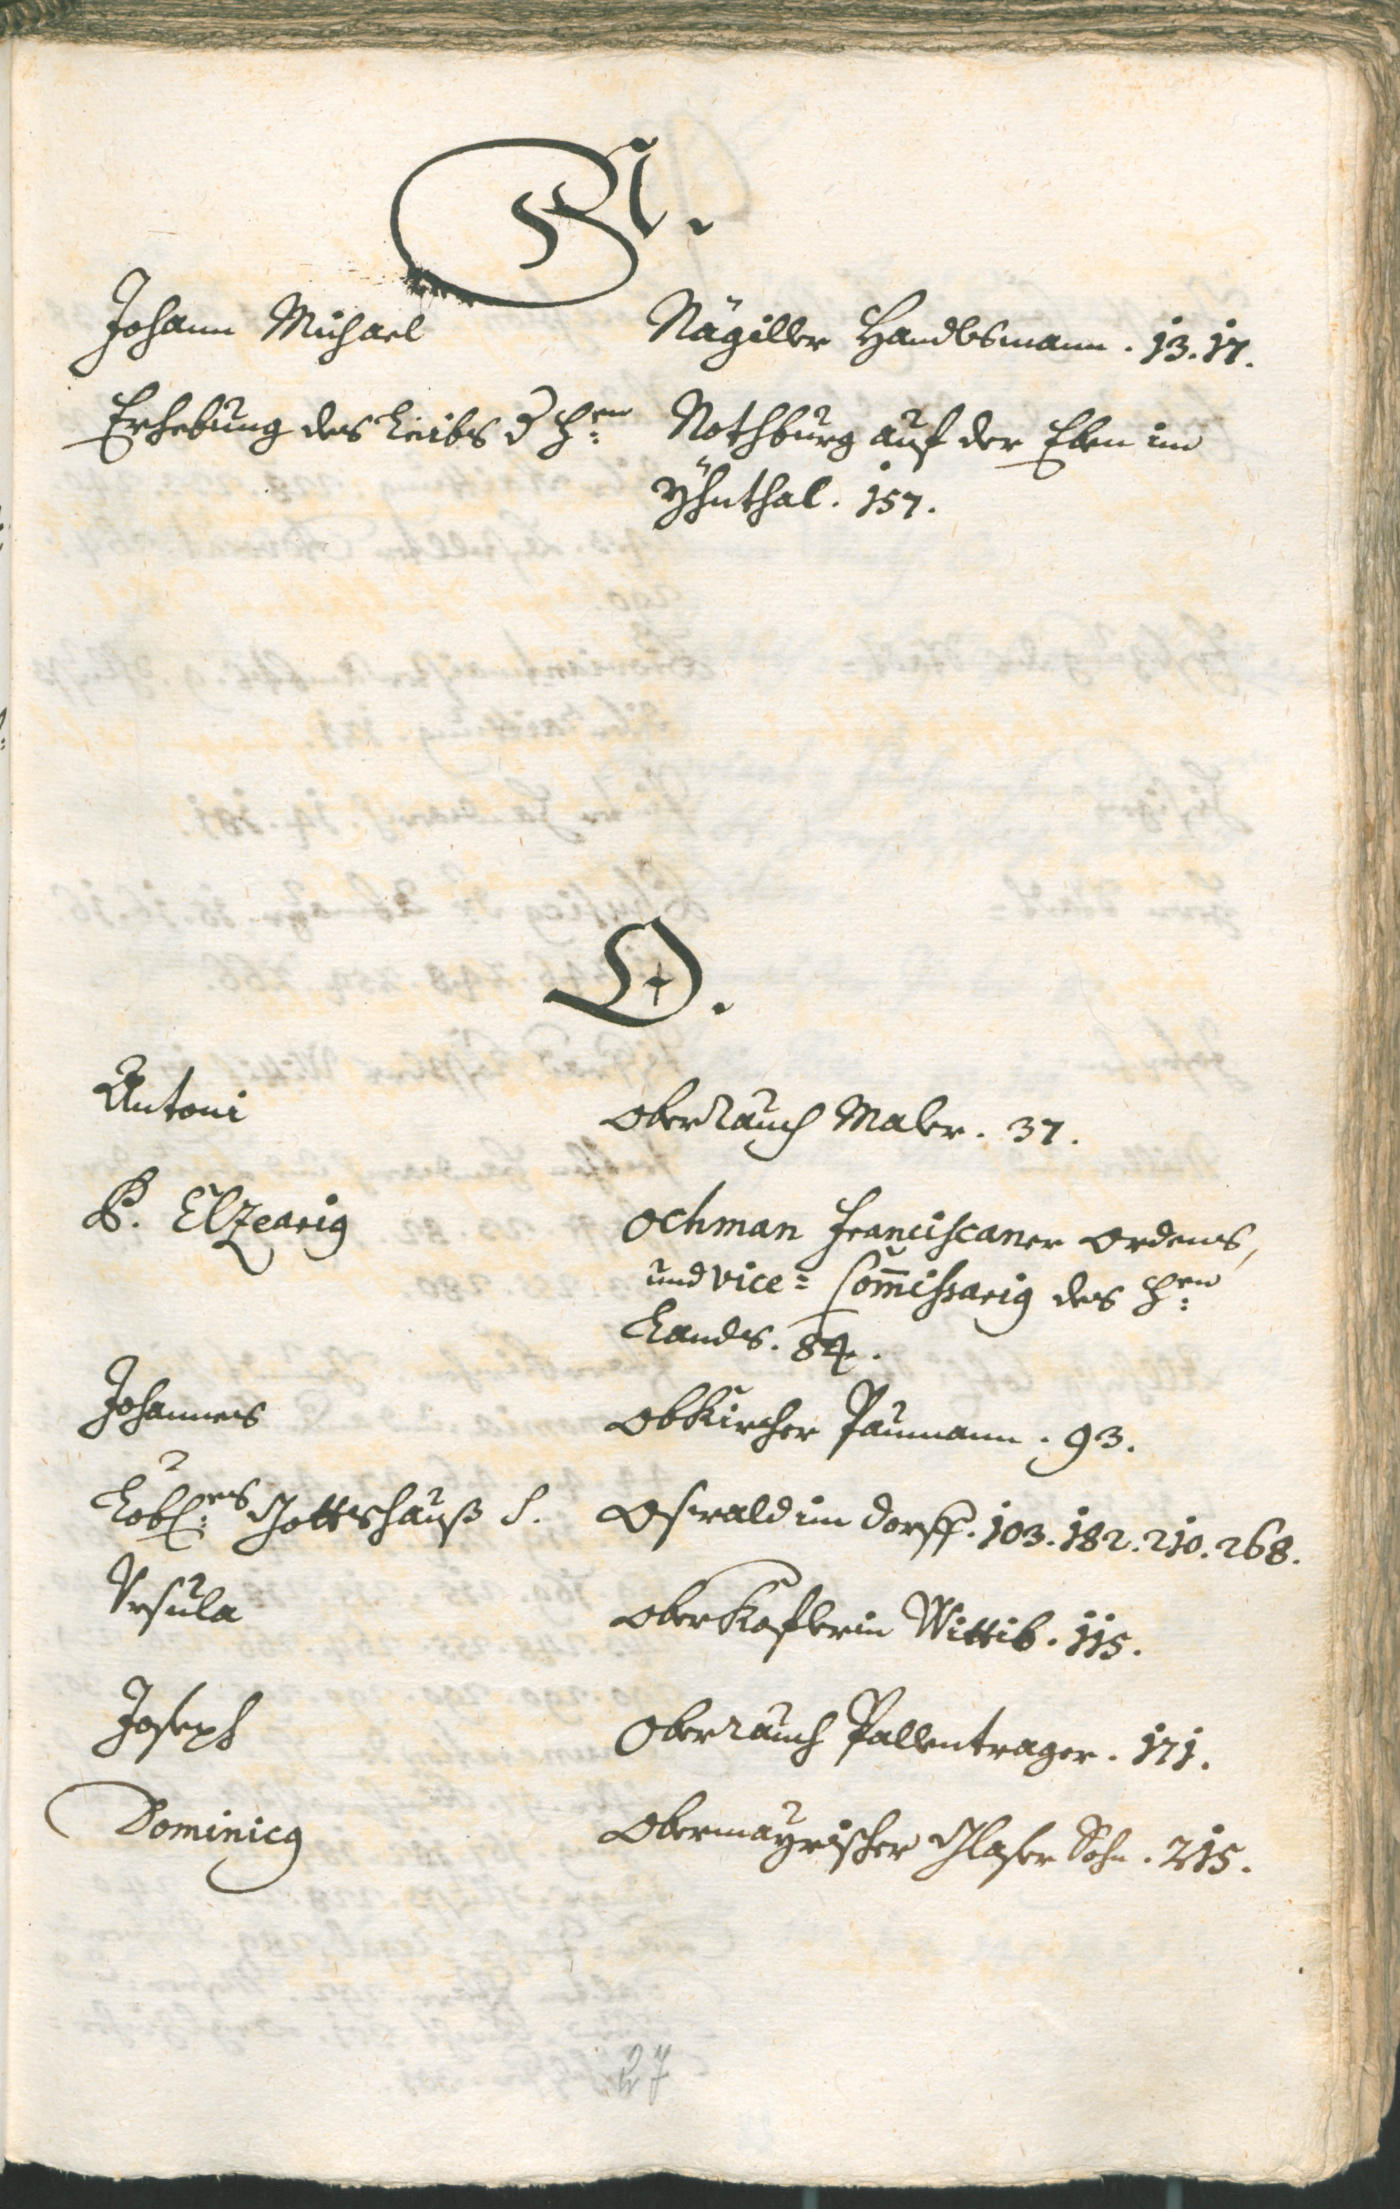 N.
Johann Michael Nägiller Handlsmann. 13. 17.
Erhebung des Leibs d' H:en Nothburg auf der Eben im
Yhnthal. 157.
O.
Antoni Oberrauch Maler. 37.
P. Elzearig Ochman Franciscaner Ordens,
und vice= Com̄issarig des H:en
Lands. 84.
Johannes Obkircher Paumann. 93.
Lobl:es Gottshauß S. Oswald im Dorff. 103. 182. 210. 268.
Ursula Oberkoflerin Wittib. 115.
Joseph Oberrauch Pallentrager. 171.
Dominicg Obermayrischer Glaser Sohn. 215.
27